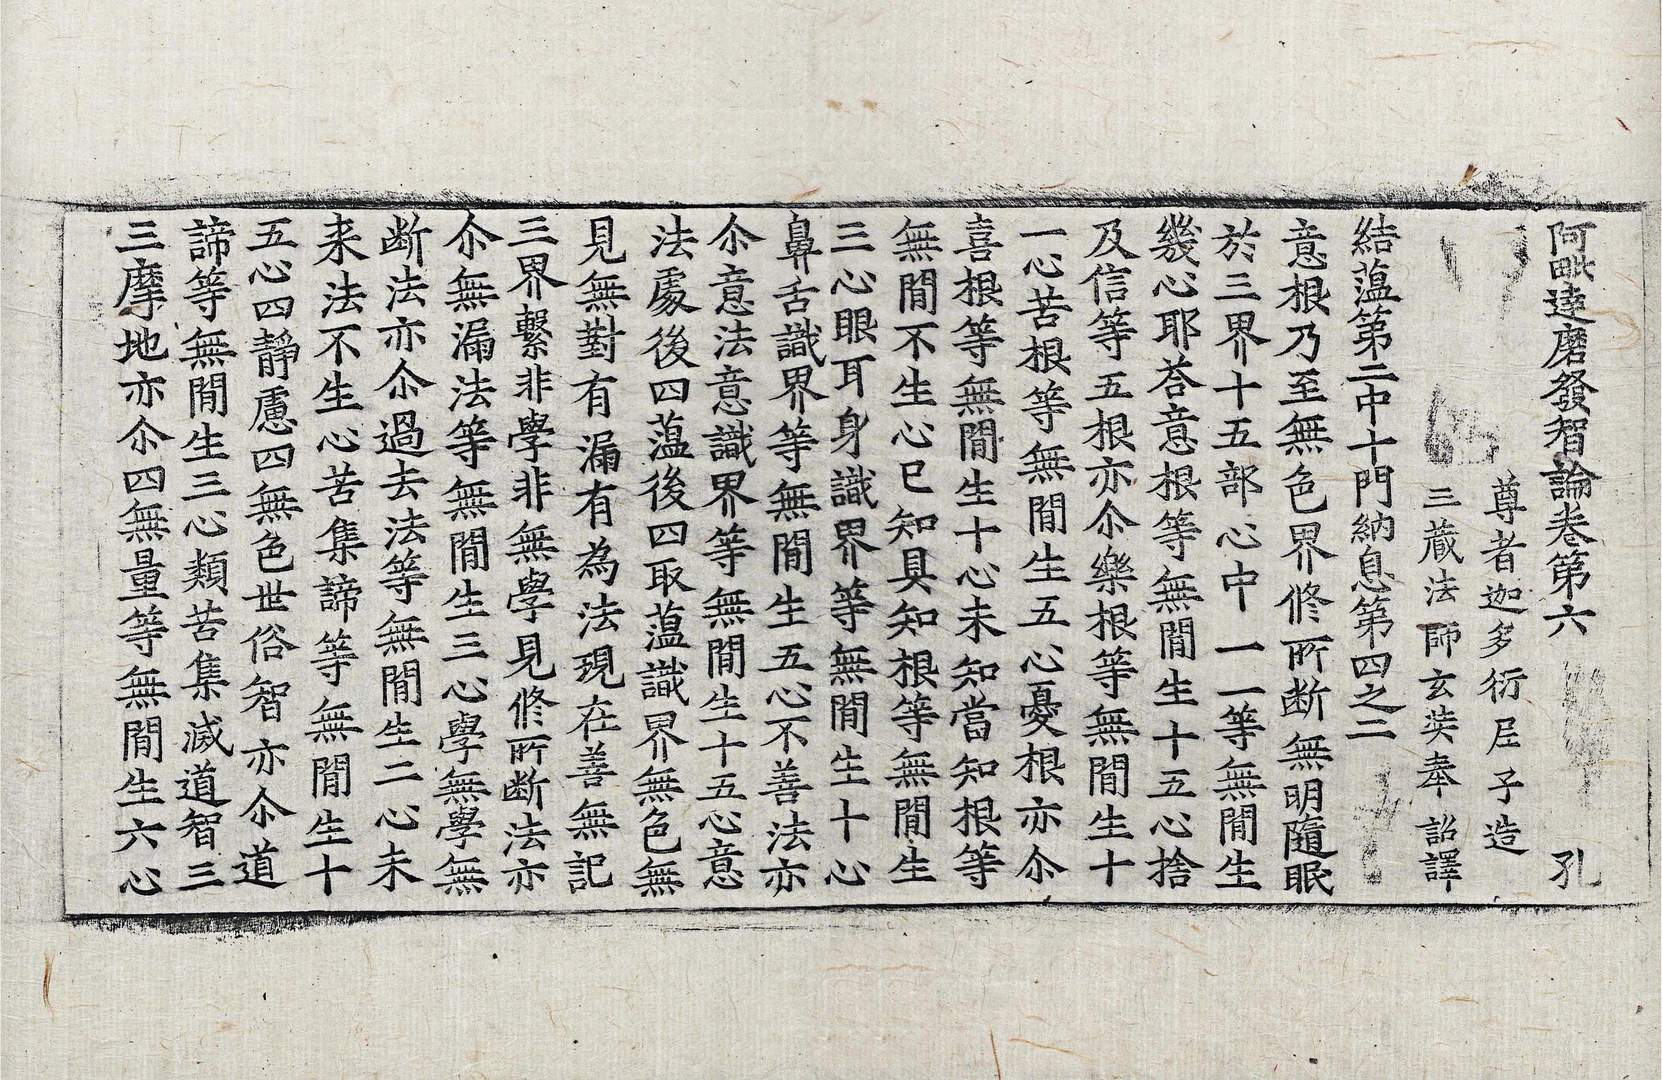 阿毗達磨發智論卷第六 孔
尊者迦多衍尼子造
三藏法師玄奘奉 詔譯
結蕰第二中十門納息第四之二
意根乃至無色界修所断無明隨眠
於三界十五部心中一一等無閒生
幾心耶荅意根等無閒生十五心捨
及信等五根亦尒樂根等無閒生十
一心苦根等無閒生五心憂根亦尒
喜根等無閒生十心未知當知根等
無閒不生心已知具知根等無閒生
三心眼耳身識界等無閒生十心
鼻舌識界等無閒生五心不善法亦
尒意法意識界等無閒生十五心意
法處後四蕰後四取蕰識界無色無
見無對有漏有為法現在善無記
三界繫非學非無學見修所断法亦
尒無漏法等無閒生三心學無學無
断法亦尒過去法等無閒生二心未
来法不生心苦集諦等無閒生十
五心四靜慮四無色世俗智亦尒道
諦等無閒生三心類苦集滅道智三
三摩地亦尒四無量等無閒生六心